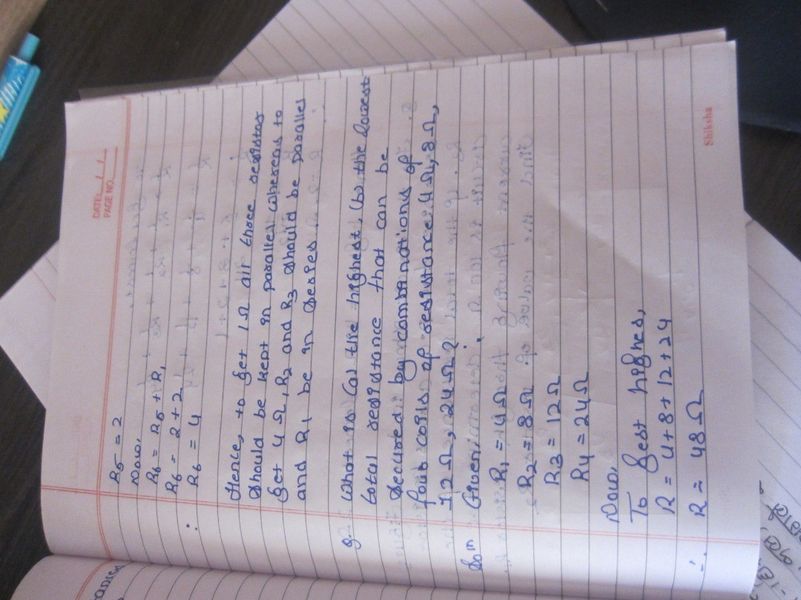 DATE: / /
PAGE NO.
R5 = 2
Now,
R6 = R5 + R1
R6 = 2 + 2
R6 = 4
Hence, to get 1 Ω all three resistor
should be kept in parallel whereas to
get 4 Ω, R2 and R3 should be parallel
and R1 be in series.
Q. What is (a) the highest, (b) the lowest
total resistance that can be
secured by combinations of
four coils of resistance 4 Ω, 8 Ω,
12 Ω, 24 Ω?
Soln Given,
R1 = 4 Ω
R2 = 8 Ω
R3 = 12 Ω
R4 = 24 Ω
Now,
To get highes,
R = 4 + 8 + 12 + 24
∴ R = 48 Ω
Shiksha